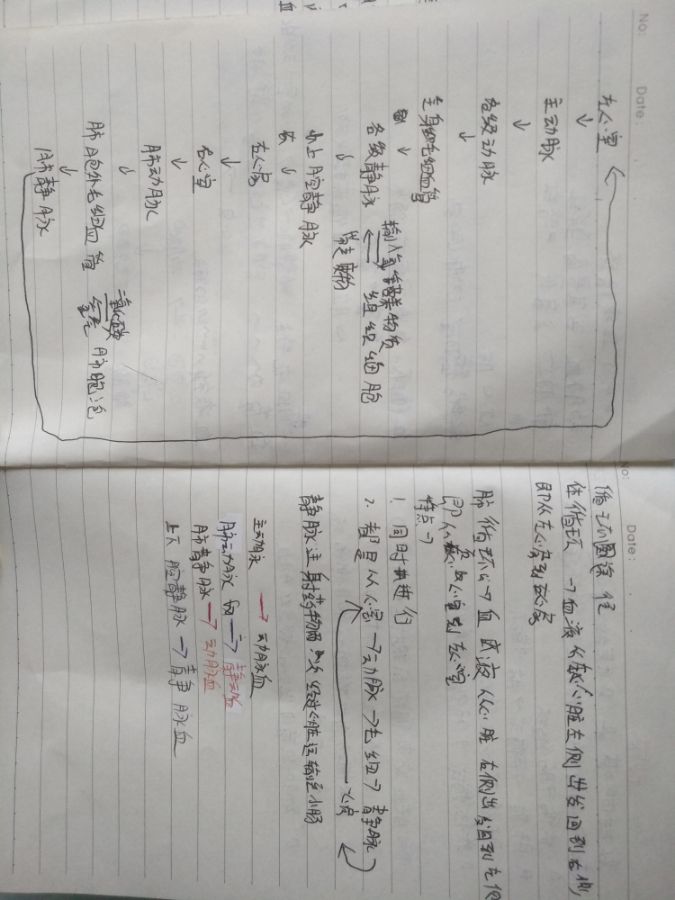 No:
Date:
左心室
↓
主动脉
↓
各级动脉
↓
全身毛细血管
↓
各级静脉 组织细胞
输入氧 营养物质
带走废物
↓
上腔静脉
↓
右心室
↓
肺动脉
↓
肺泡外毛细血管 肺泡
二氧化碳
↓
肺静脉
No:
Date:
循环
体循环→血液从心脏左侧出发回到右侧
即从左心室到右心房
肺循环→血液从心脏右侧出发回到左侧
即从右心室到左心
特点→
1. 同时进行
2. 都是从心室→动脉→毛细→静脉
心房
静脉注射药物 经过心脏运输至小肠
主动脉→动脉血
肺动脉→静脉血
肺静脉→动脉血
上下腔静脉→静脉血